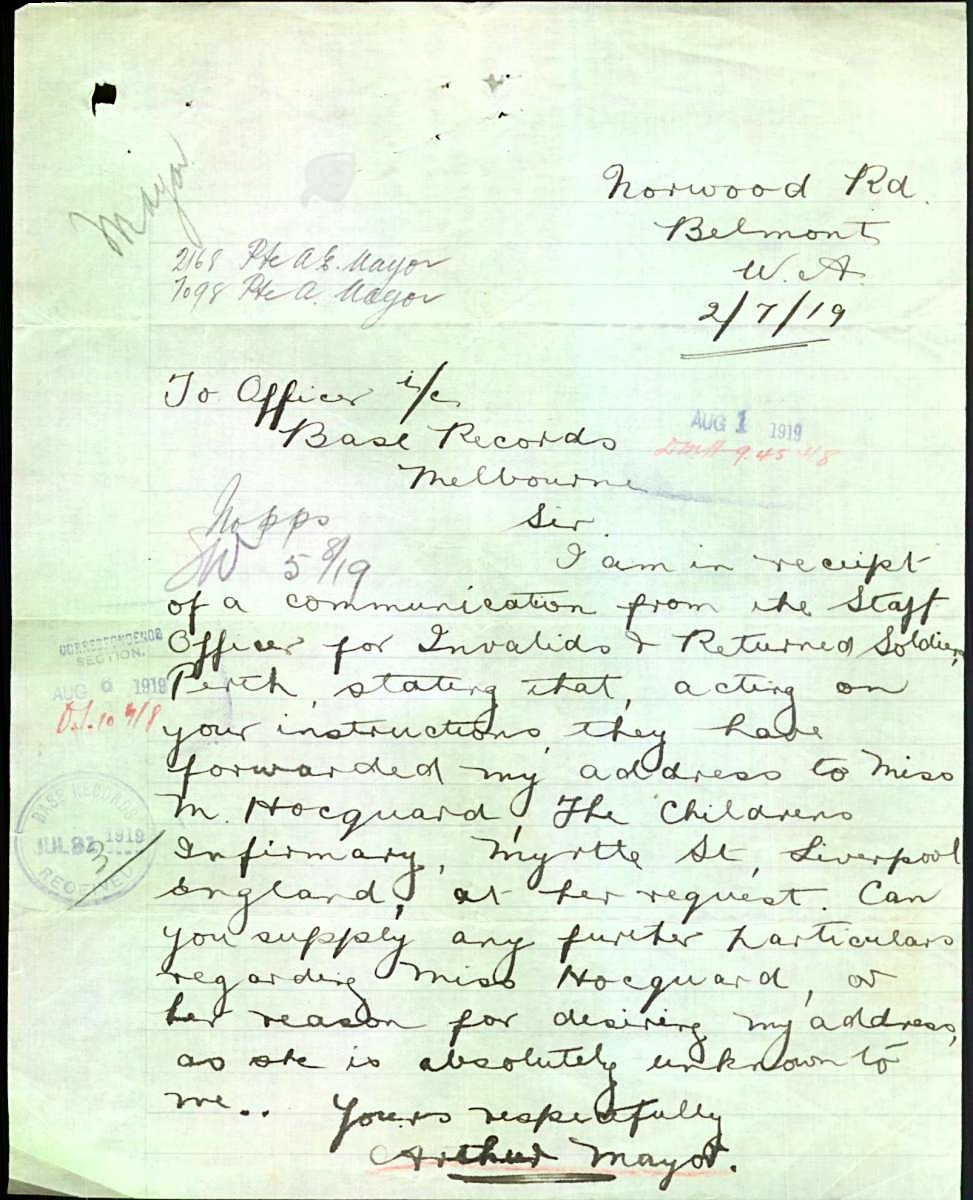 Mayor
Norwood Rd.
Belmont
W. A.
2/7/19
2168 Pte A.E. Mayor
7098 Pte A. Mayor
To Officer i/c
Base Records
Melbourne
AUG 1 1919
9.45
Sir
5/8/19
I am in receipt
of a communication from the Staff
Officer for Invalids & Returned Soldiers,
Perth, stating that, acting on
your instructions, they have
forwarded my address to Miss
M. Hocquard, The Childrens
Infirmary, Myrtle St, Liverpool
England, at her request. Can
you supply any further particulars
regarding Miss Hocquard, or
her reason for desiring my address,
as she is absolutely unknown to
me..
Yours respectfully
Arthur Mayor.
CORRESPONDENCE
SECTION.
AUG 6 1919
BASE RECORDS
JUL 1919
RECEIVED